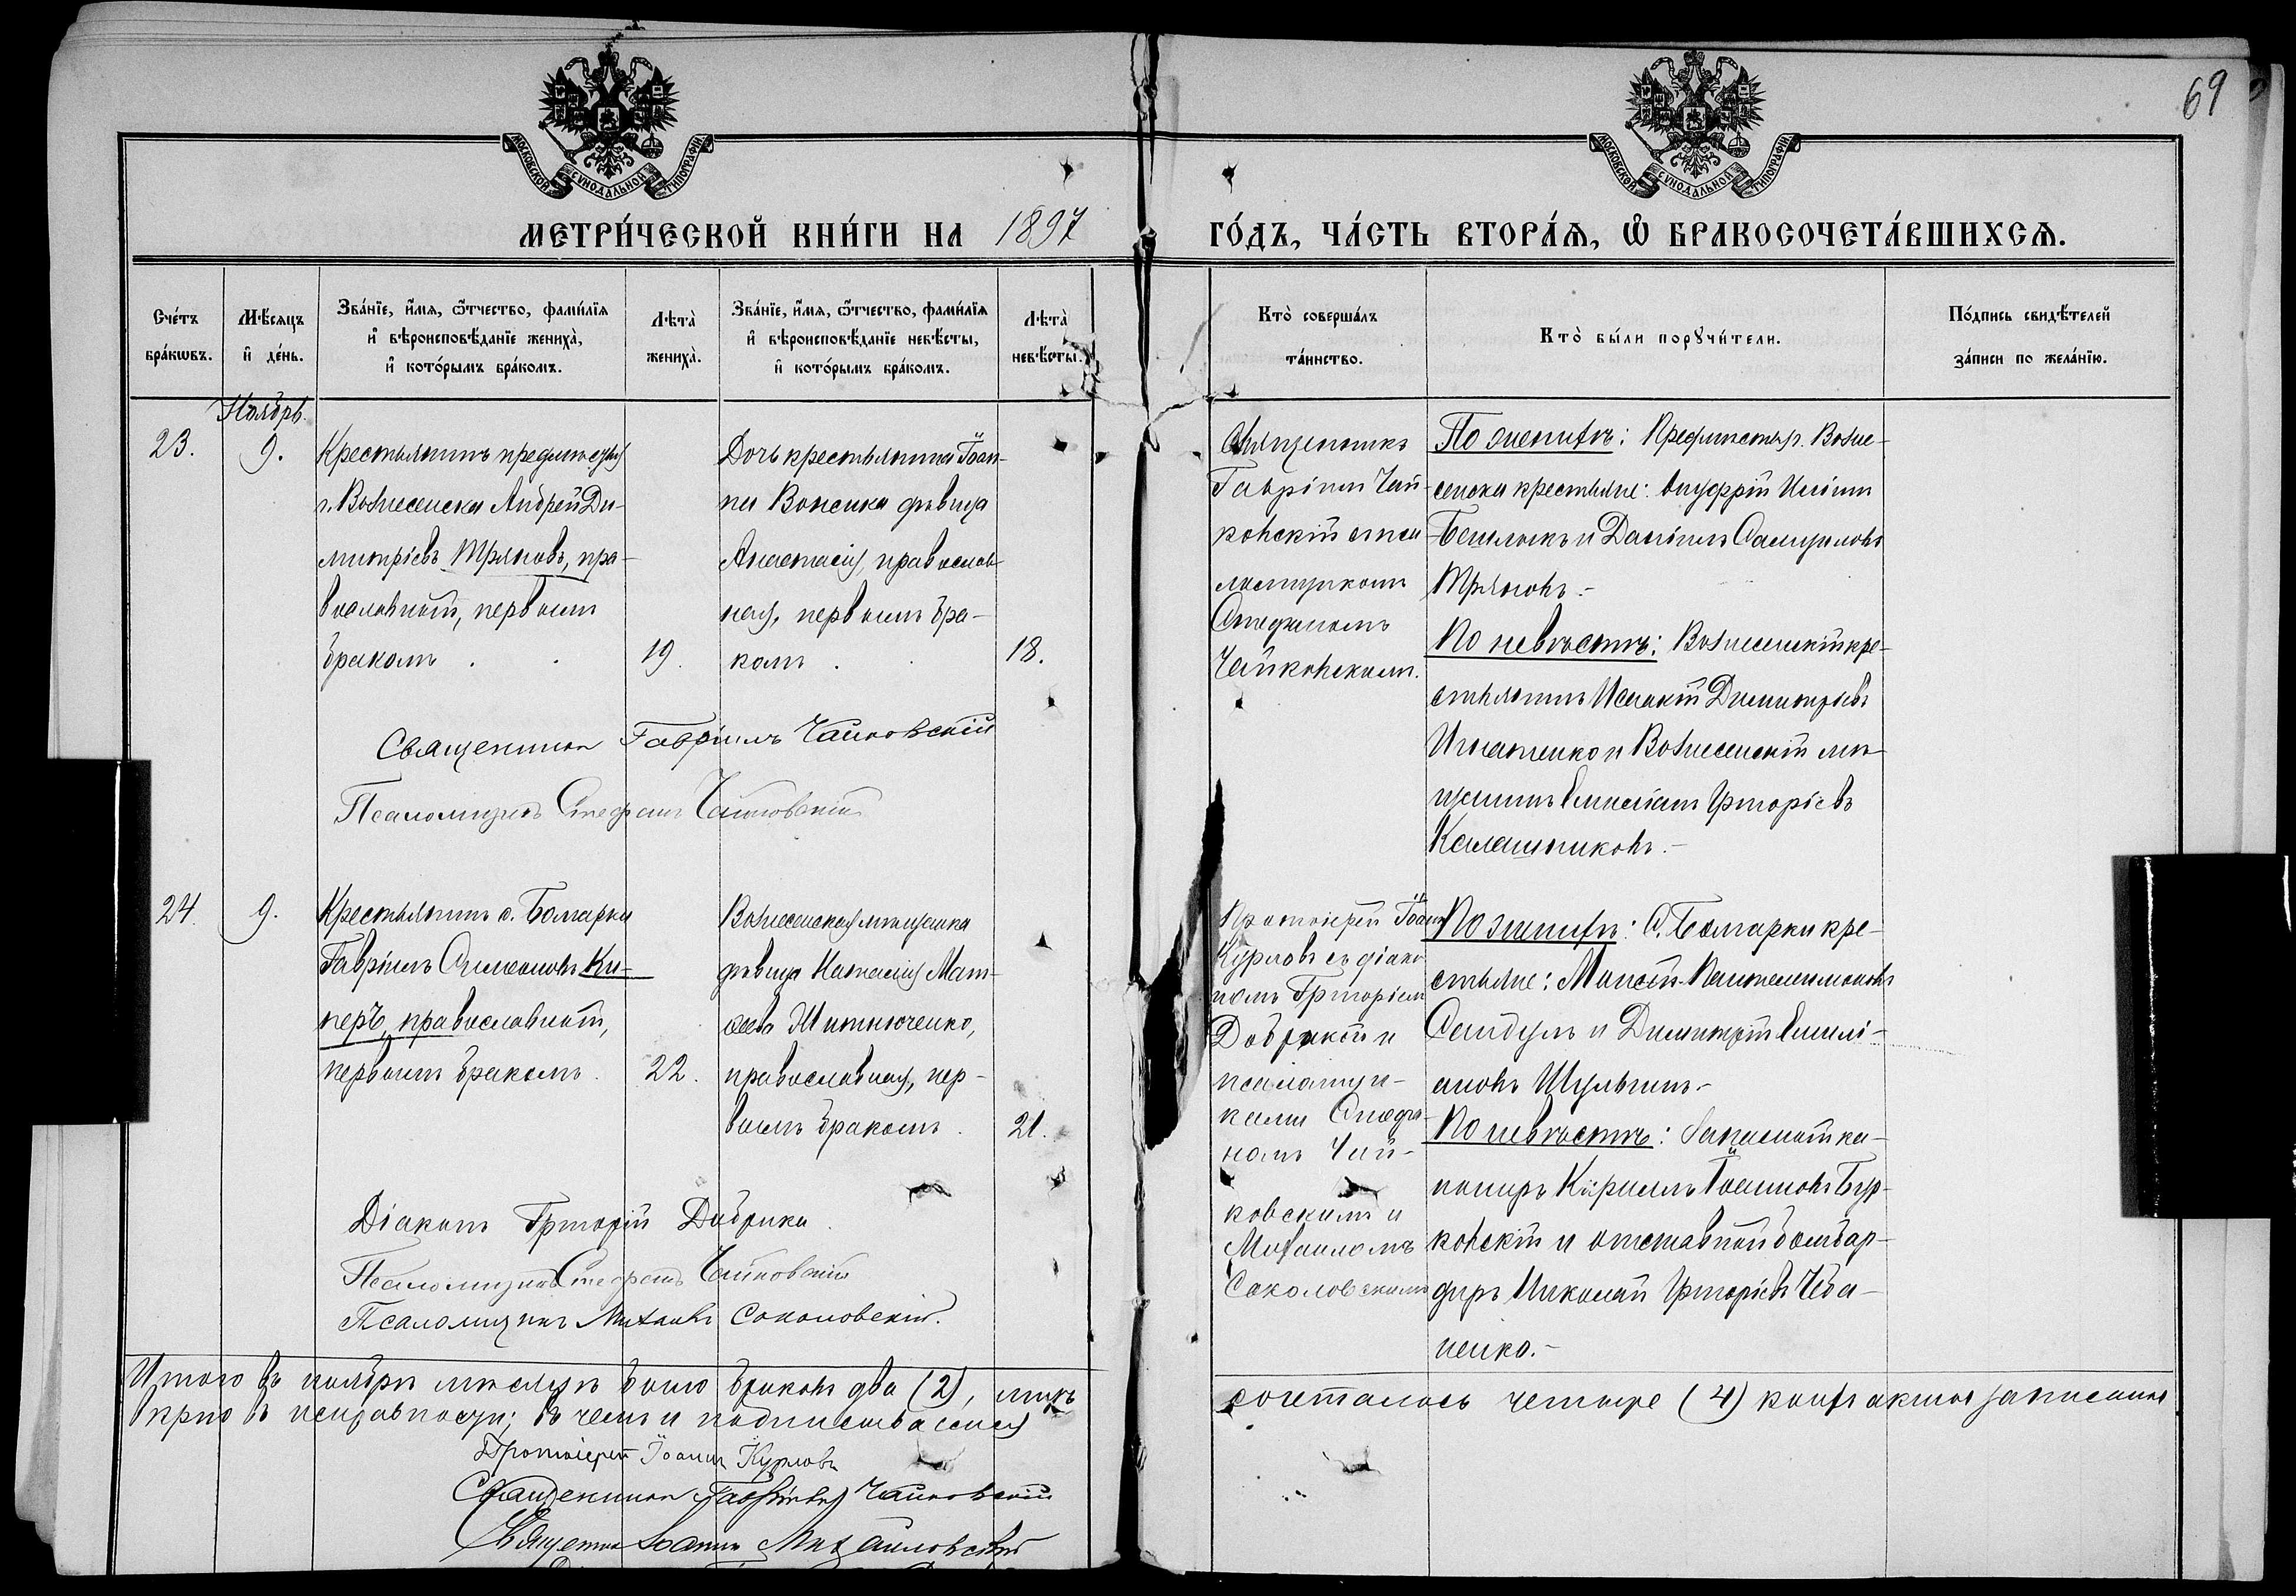 69
МОСКОВСКОЙ СУНОДАЛЬНОЙ ТИПОГРАФИИ
МОСКОВСКОЙ СУНОДАЛЬНОЙ ТИПОГРАФИИ
МЕТРИ́ЧЕСКОЙ КНИ́ГИ НА 1897 ГО́ДЪ, ЧА́СТЬ ВТОРА́Я, Ѡ҆ БРАКОСОЧЕТА́ВШИХСЯ.
Сче́тъ
бра́кѡвъ.
Мѣ́сяцъ
и҆ де́нь.
Зва́нїе, и҆́мя, ѻ҆́тчество, фами́лїя
и҆ вѣроисповѣ́данїе жениха̀,
и҆ кото́рымъ бра́комъ.
Лѣта̀
жениха̀.
Зва́нїе, и҆́мя, ѻ҆́тчество, фами́лїя
и҆ вѣроисповѣ́данїе невѣ́сты,
и҆ кото́рымъ бра́комъ.
Лѣта̀
невѣ́сты.
Кто̀ соверша́лъ
та́инство.
Кто̀ бы́ли порꙋчи́тели.
По́дпись свидѣ́телей
за́писи по жела́нїю.
Ноябрь.
23.
9.
Крестьянинъ предмѣстья
г. Вознесенска Андрей Ди-
митріевъ Тряновъ, пра-
вославный, первымъ
бракомъ
19.
Дочь крестьянина Іоан-
на девица
Анастасія, православ-
ная, первымъ бра-
комъ
18.
Священникъ
Гавріилъ Чай-
ковскій съ пса
ломщикомъ
Стефаномъ
Чайковскимъ.
По женихѣ: Предмѣстья г. Возне-
сенска крестьяне: Онуфрій
и Даніилъ Самуиловъ
Тряновъ.-
По невѣстѣ: Вознесенскій кре-
стьянинъ Исаакій Димитріевъ
Игнатенко и Вознесенскій мѣ-
щанинъ Емиліанъ Григоріевъ
Калашниковъ.-
Священникъ Гавріилъ Чайковскій
Псаломщикъ Стефанъ Чайковскій
24.
9.
Крестьянинъ с. Болгарки
Гавріилъ Симеоновъ Ки-
неръ, православный,
первымъ бракомъ.
22.
Вознесенская мѣщанка
дѣвица Наталія Мат-
ѳеева Митюченко,
православная, пер-
вымъ бракомъ.
21.
Протоіерей Іоаннъ
Курловъ съ діако
номъ Григоріемъ
Добрикой и
псаломщи-
ками Стефа-
номъ Чай-
ковскимъ и
Михаиломъ
Соколовскимъ
По женихѣ: С. Болгарки кре-
стьяне: Моисей Пантелеимоновъ
Сандулъ и Димитрій Емилі-
ановъ Шульгинъ.-
По невѣстѣ: Запасный ка-
нониръ Кириллъ Іоанновъ Бур-
ковскій и отставной бомбар-
диръ Николай Григоріевъ Чеба-
ненко.-
Діаконъ Григорій Добрика.
Псаломщикъ Стефанъ Чайковскій
Псаломщикъ Михаилъ Соколовскій.
Итого въ ноябрѣ мѣсяцѣ было браковъ два (2), лицъ сочеталось четыре (4) записаны
вѣрно въ исправности; въ чемъ и подписываемся
Протоіерей Іоаннъ Курловъ
Священникъ Гавріилъ Чайковскій
Священникъ Іоаннъ Михайловскій